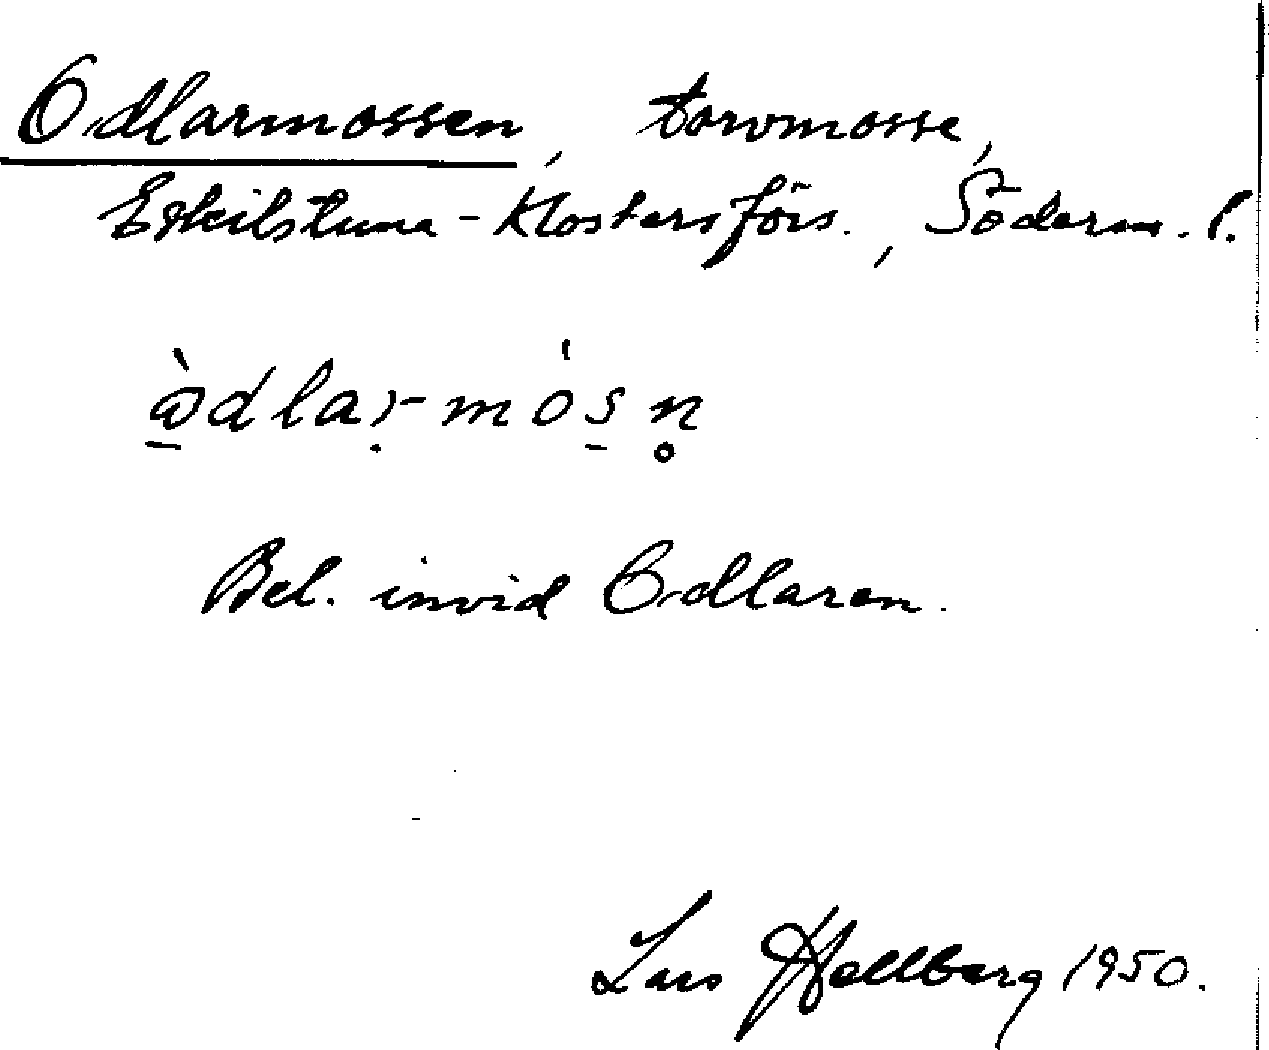 Odlarmossen, torvmosse,
Eskilstuna-Klosters förs., Söderm. l.
àdlạr-mósn̥
Bel. invid Odlaren.
Lars Hellberg 1950.